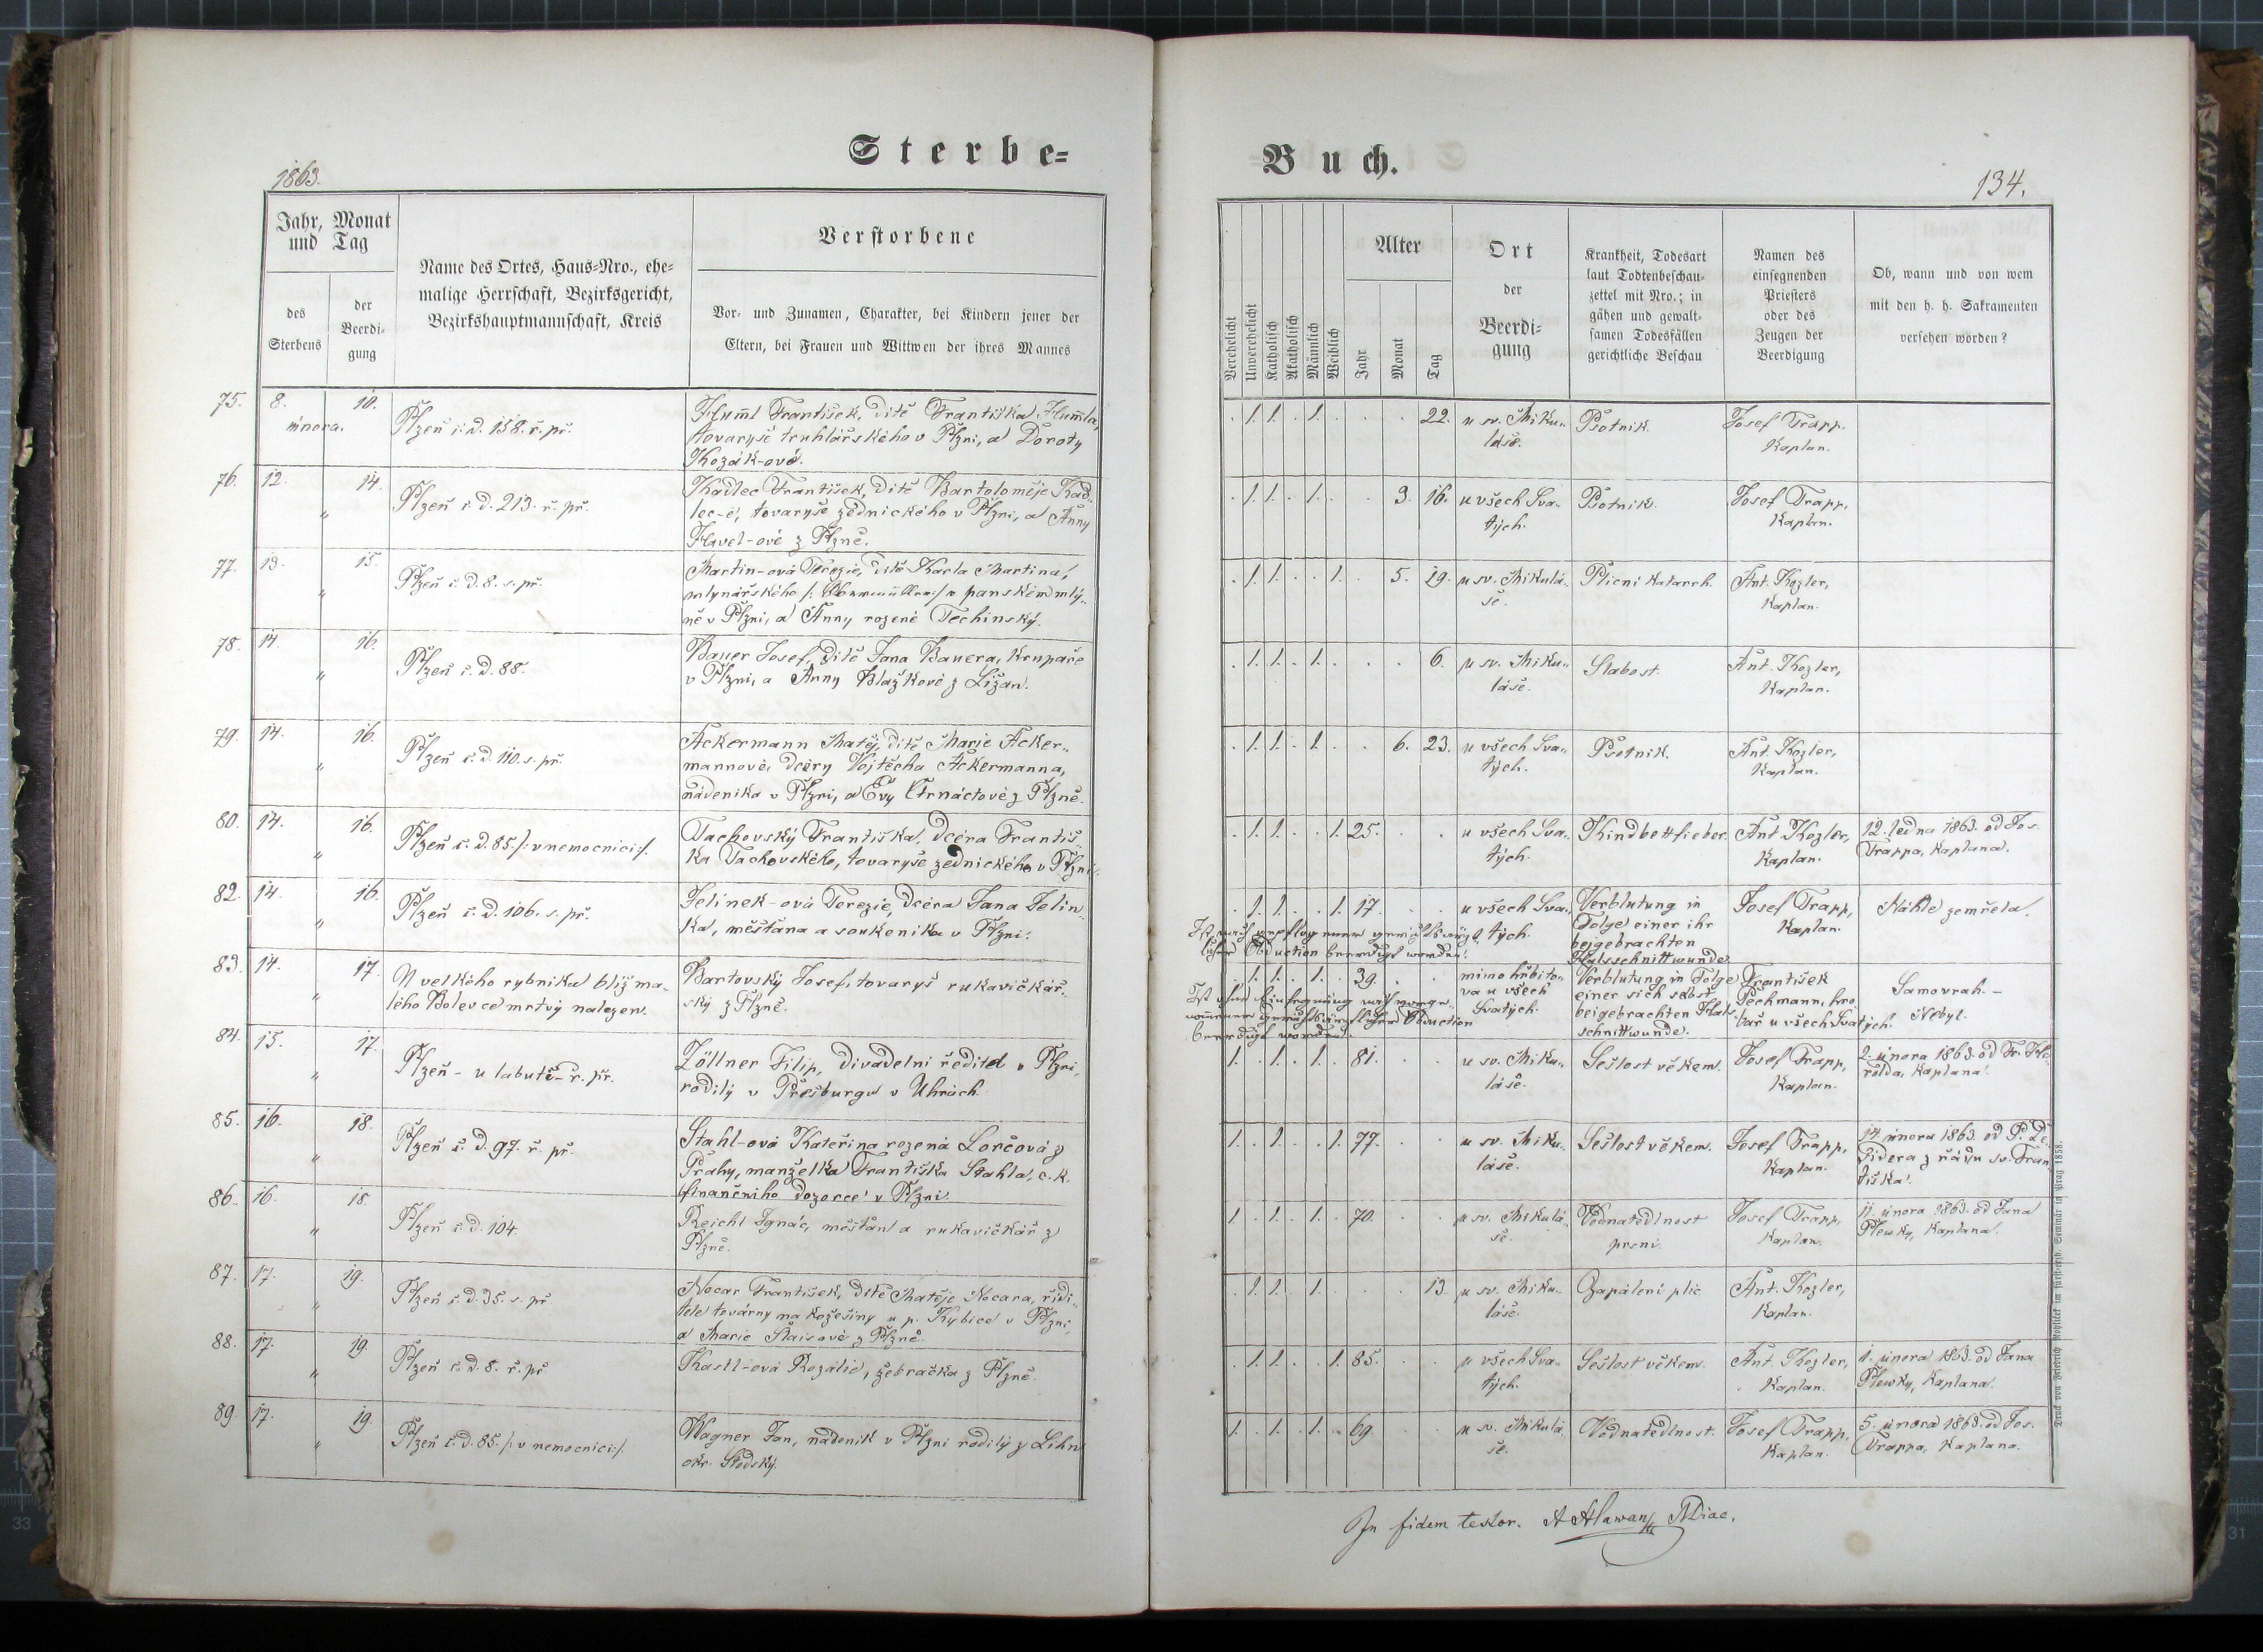 Sterbe-
1863.
Jahr, Monat und Tag
des Sterbens
der Beerdi-gung
Name des Ortes, Haus-Nro., ehe-
malige Herrschaft, Bezirksgericht,
Bezirkshauptmannschaft, Kreis
Verstorbene
Vor- und Zunamen, Charakter, bei Kindern jener der
Eltern, bei Frauen und Wittwen der ihres Mannes
75. 8. 10. února. Plzeň č. d. 158. ř. př.
Huml František, dítě Františka Humla,
tovaryše truhlářského v Plzni, a Doroty
Kozák-ové.
76. 12. 14. " Plzeň č. d. 213. ř. př.
Kadlec František, dítě Bartoloměje Kad-
lec-e, tovaryše zednického v Plzni, a Anny
Havel-ové z Plzně.
77. 13. 15. " Plzeň č. d. 8. s. př.
Martin-ová Terezie, dítě Karla Martina,
mlynářského v panském mlý-
ně v Plzni, a Anny rozené Techinský.
78. 14. 16. " Plzeň č. d. 88.
Bauer Josef, dítě Jana Bauera, krupaře
v Plzni, a Anny Blažkové z Ližan.
79. 14. 16. " Plzeň č. d. 110. s. př.
Ackermann Matěj, dítě Marie Acker-
mannové, dcéry Vojtěcha Ackermanna,
nádenika v Plzni, a Evy Čtrnáctové z Plzně.
80. 14. 16. " Plzeň č. d. 85. /: v nemocnici :/.
Tachovský Františka, dcéra Františ-
ka Tachovského, tovaryše zednického v Plzni.
82. 14. 16. " Plzeň č. d. 106. s. př.
Jelínek-ová Terezie, dcéra Jana Jelín-
ka, měšťana a soukeníka v Plzni.
83. 14. 17. " U velkého rybníka blíž ma-
lého Bolevce mrtvý nalezen.
Bartovský Josef, tovaryš rukavičkář-
ský z Plzně.
84. 15. 17. " Plzeň - u labutě - ř. př.
Zöllner Filip, divadelní ředitel v Plzni,
rodilý v Prešburgu v Uhrách.
85. 16. 18. " Plzeň č. d. 97. ř. př.
Stahl-ová Kateřina rozená Lorčová z
Prahy, manželka Františka Stahla, c. k.
finančního dozorce v Plzni.
86. 16. 18. " Plzeň č. d. 104.
Reichl Ignác, měšťan a rukavičkář z
Plzně.
87. 17. 19. " Plzeň č. d. 35. s. př.
Nocar František, dítě Matěje Nocara, ředi-
tele továrny na kožešiny u p. Kybice v Plzni,
a Marie Slaisové z Plzně.
88. 17. 19. " Plzeň č. d. 8. ř. př.
Kastl-ová Rozálie, žebračka z Plzně.
89. 17. 19. " Plzeň č. d. 85. /: v nemocnici :/.
Wagner Jan, nádeník v Plzni rodilý z Lihn
okr. Stodský.
Buch.
134.
Verehelicht
Unverehelicht
Katholisch
Akatholisch
Männlich
Weiblich
Alter
Jahr
Monat
Tag
Ort
der
Beerdi-
gung
Krankheit, Todesart
laut Todtenbeschau-
zettel mit Nro.; in
gähen und gewalt-
samen Todesfällen
gerichtliche Beschau
Namen des
einsegnenden
Priesters
oder des
Zeugen der
Beerdigung
Ob, wann und von wem
mit den h. h. Sakramenten
versehen wörden?
. 1. 1. . 1. . . . 22. u sv. Miku-
láše. Psotník. Josef Trapp, Kaplan.
. 1. 1. . 1. . . 3. 16. u všech Sva-
tých. Psotník. Josef Trapp, Kaplan.
. 1. 1. . . 1. . 5. 29. u sv. Mikulá-
še. Plicní katarrh. Ant. Kozler, Kaplan.
. 1. 1. . 1. . . . 6. u sv. Miku-
láše. Slabost. Ant. Kozler, Kaplan.
. 1. 1. . 1. . . 6. 23. u všech Sva-
tých. Psotník. Ant. Kozler, Kaplan.
. 1. 1. . . 1. 25. . . u všech Sva-
tých. Kindbettfieber. Ant. Kozler, Kaplan. 12. ledna 1863. od Jos.
Trappa, Kaplana.
. 1. 1. . . 1. 17. . . u všech Sva-
tých. Verblutung in
Folge einer ihr
beigebrachten
Halsschnittwunde. Josef Trapp, Kaplan. Náhle zemřela.
Ist nach gepflogener
Obduction beerdigt worden.
. 1. 1. . 1. . 39. . . mimo hřbito-
va u všech
Svatých. Verblutung in Folge
einer sich selbst
beigebrachten Hals-
schnittwunde. František
Pechmann, hro-
bař u všech Svatých. Samovrah. -
Nebyl.
Ist ohne Einsegnung nach vorge-
nommener Obduction
beerdigt worden.
1. . 1. . 1. . 81. . . u sv. Miku-
láše. Sešlost věkem. Josef Trapp, Kaplan. 2. února 1863. od Fr. He-
rolda, Kaplana.
1. . 1. . . 1. 77. . . u sv. Miku-
láše. Sešlost věkem. Josef Trapp, Kaplan. 14. února 1863. od P. De-
sidera z řádu sv. Fran-
tiška.
1. . 1. . 1. . 70. . . u sv. Mikulá-
še. Vodnatedlnost
prsní. Josef Trapp, Kaplan. 11. února 1863. od Jana
Plewky, Kaplana.
. 1. 1. . 1. . . . 13. u sv. Miku-
láše. Zapálení plic Ant. Kozler, Kaplan.
. 1. 1. . . 1. 85. . . u všech Sva-
tých. Sešlost věkem. Ant. Kozler, Kaplan. 1. února 1863. od Jana
Plewky, Kaplana.
1. . 1. . 1. . 69. . . u sv. Mikulá-
še. Vodnatedlnost. Josef Trapp, Kaplan. 5. února 1863. od Jos.
Trappa, Kaplana.
In fidem testor.
Prag 1858.
33
31